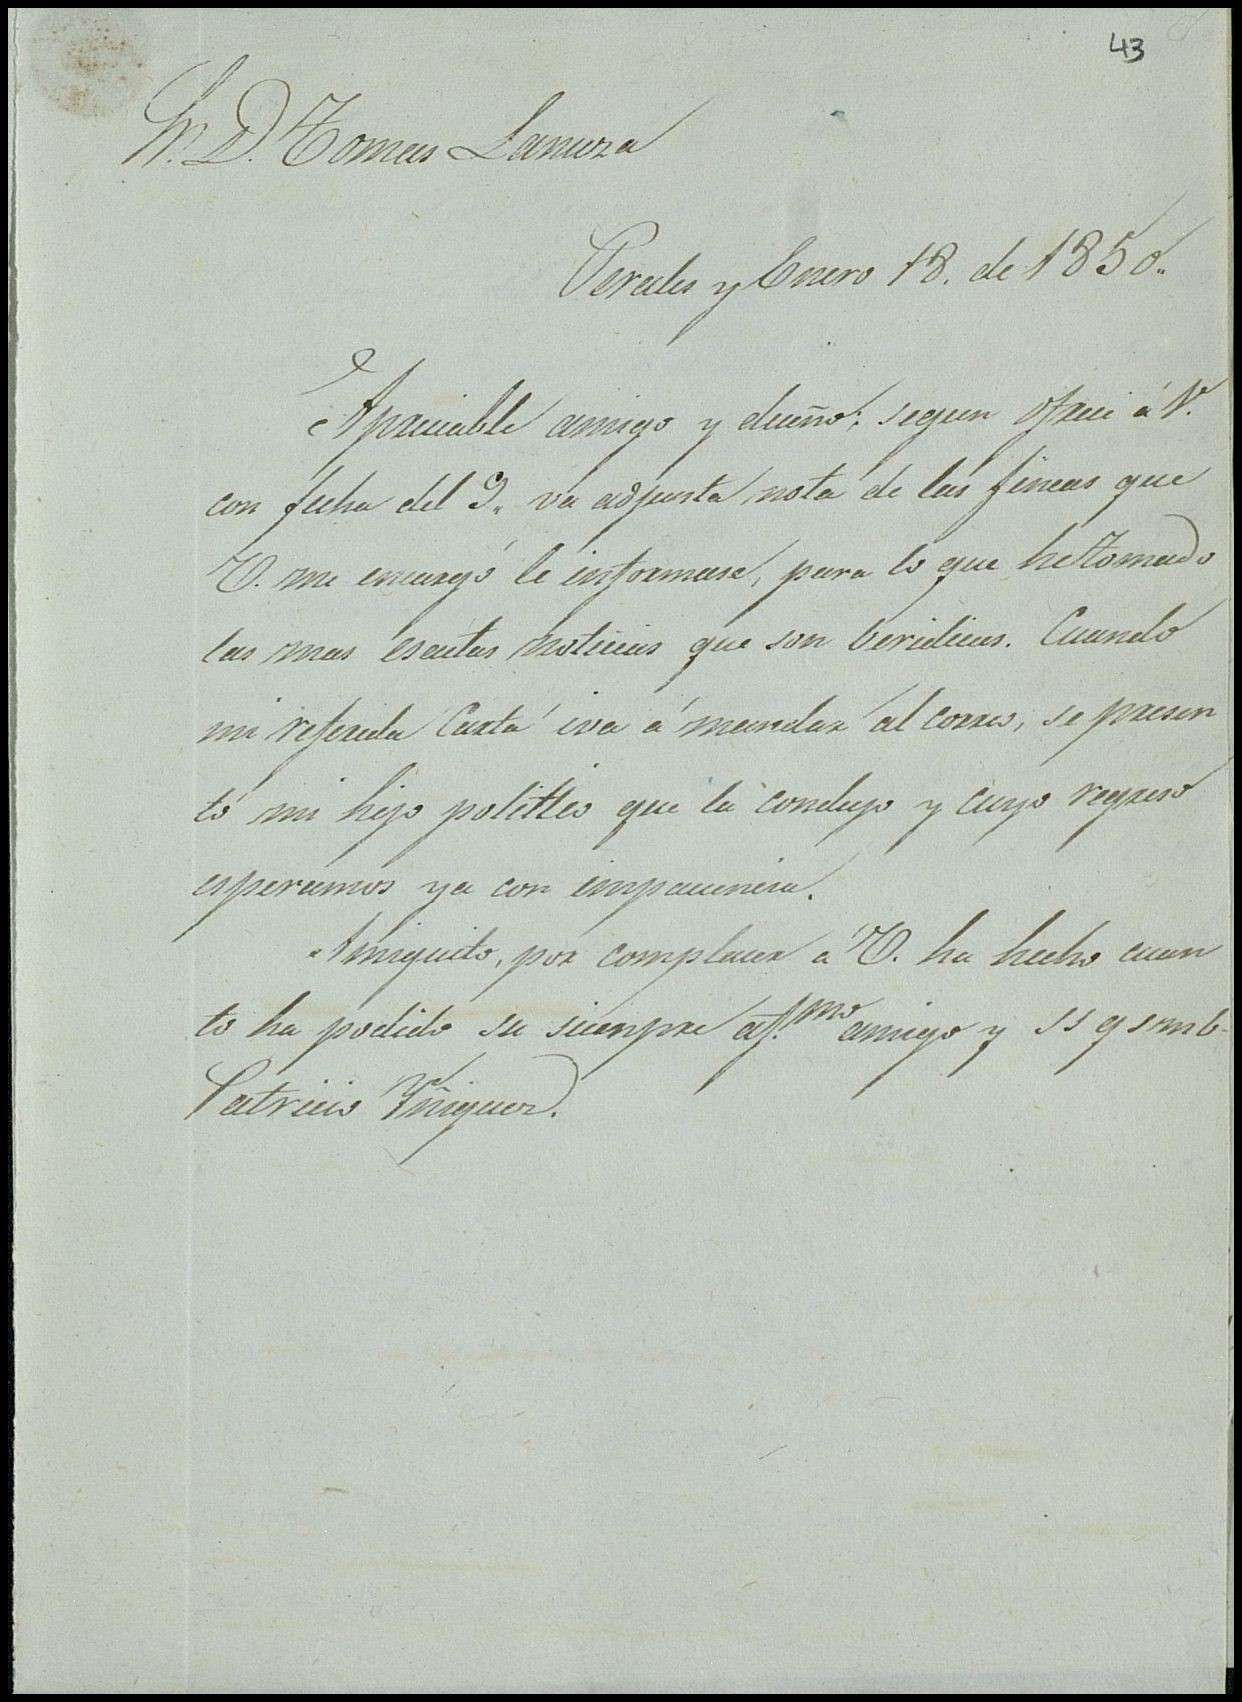 43
Sr. D. Tomas Lanuza
Perales y Enero 18. de 1850.
Apreciable amigo y dueño: segun ofreci á V.
con fecha del 9, va adjunta nota de las fincas que
V. me encargó le informase, para lo que he tomado
las mas esactas noticias que son beridicas. Cuando
mi referida Carta iva á mandar al correo, se presen
tó mi hijo politico que la condujo y cuyo regreso
esperamos ya con impaciencia.
Amiguito, por complacer á V. ha hecho cuan
to ha podido su siempre af.mo amigo y s s q s m b
Patricio Yñiguez.